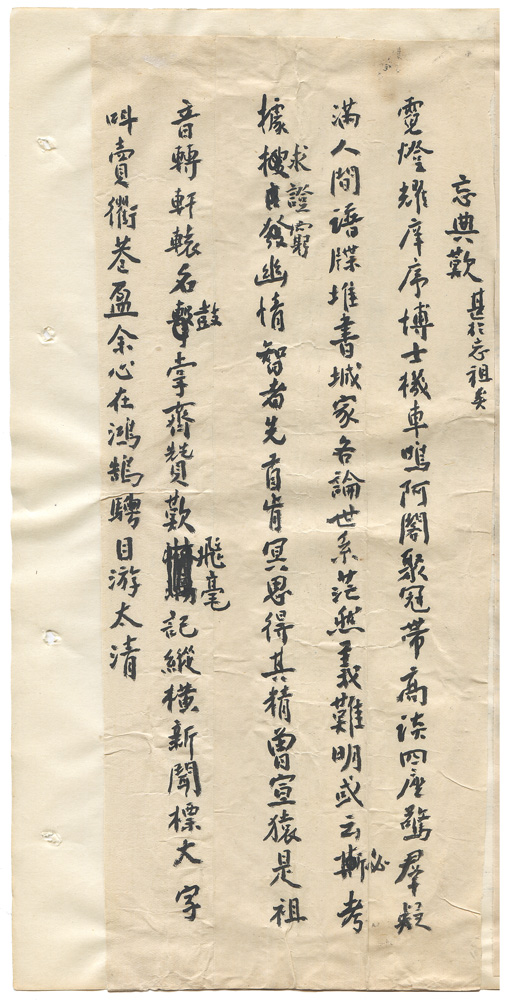 忘典歎 甚於忘祖矣
霓燈耀庠序博士機車鳴阿閣聚冠帶高談四座驚群疑
滿人間譜牒堆書城家各論世系茫然義難明或云必考
求證窮
據搜發幽情智者先首肯冥思得其精曾宣猿是祖
音轉軒轅名鼓掌齊贊歎飛毫記縱橫新聞標大字
叫賣衢巷盈余心在鴻鵠騁目游太清